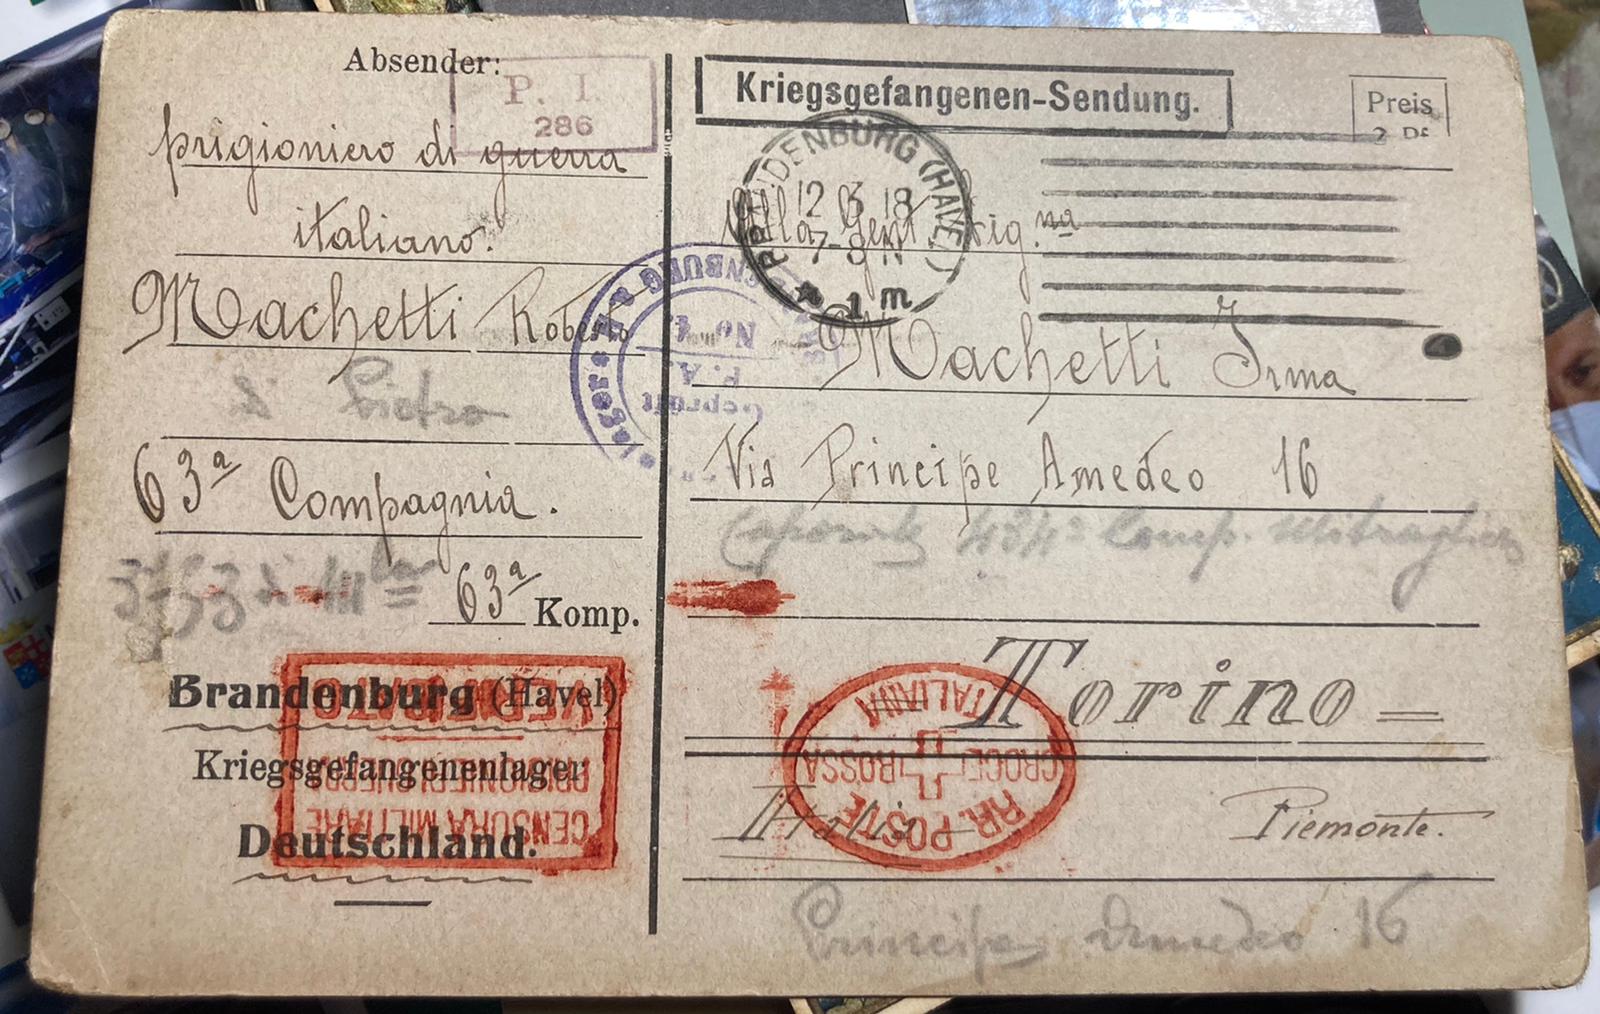 Absender:
P. I.
286
prigioniero di guerra
italiano.
Machetti Roberto
di Pietro
63ª Compagnia.
63ª Komp.
Brandenburg (Havel)
Kriegsgefangenenlager
Deutschland.
VERIFICATO
PRIGIONIERI GUERRA
CENSURA MILITARE
Kriegsgefangenen-Sendung.
Preis
2 Pf
BRANDENBURG (HAVEL)
12 3 18
7-8 N
* 1 m
Alla Gent. Sig.na
Geprüft
F. A.
No 4.
Machetti Irma
Via Principe Amedeo 16
434ª Comp. Mitraglici
Torino
RR. POSTE
CROCE ROSSA
ITALIANA
Italia
Piemonte.
Principe Amedeo 16